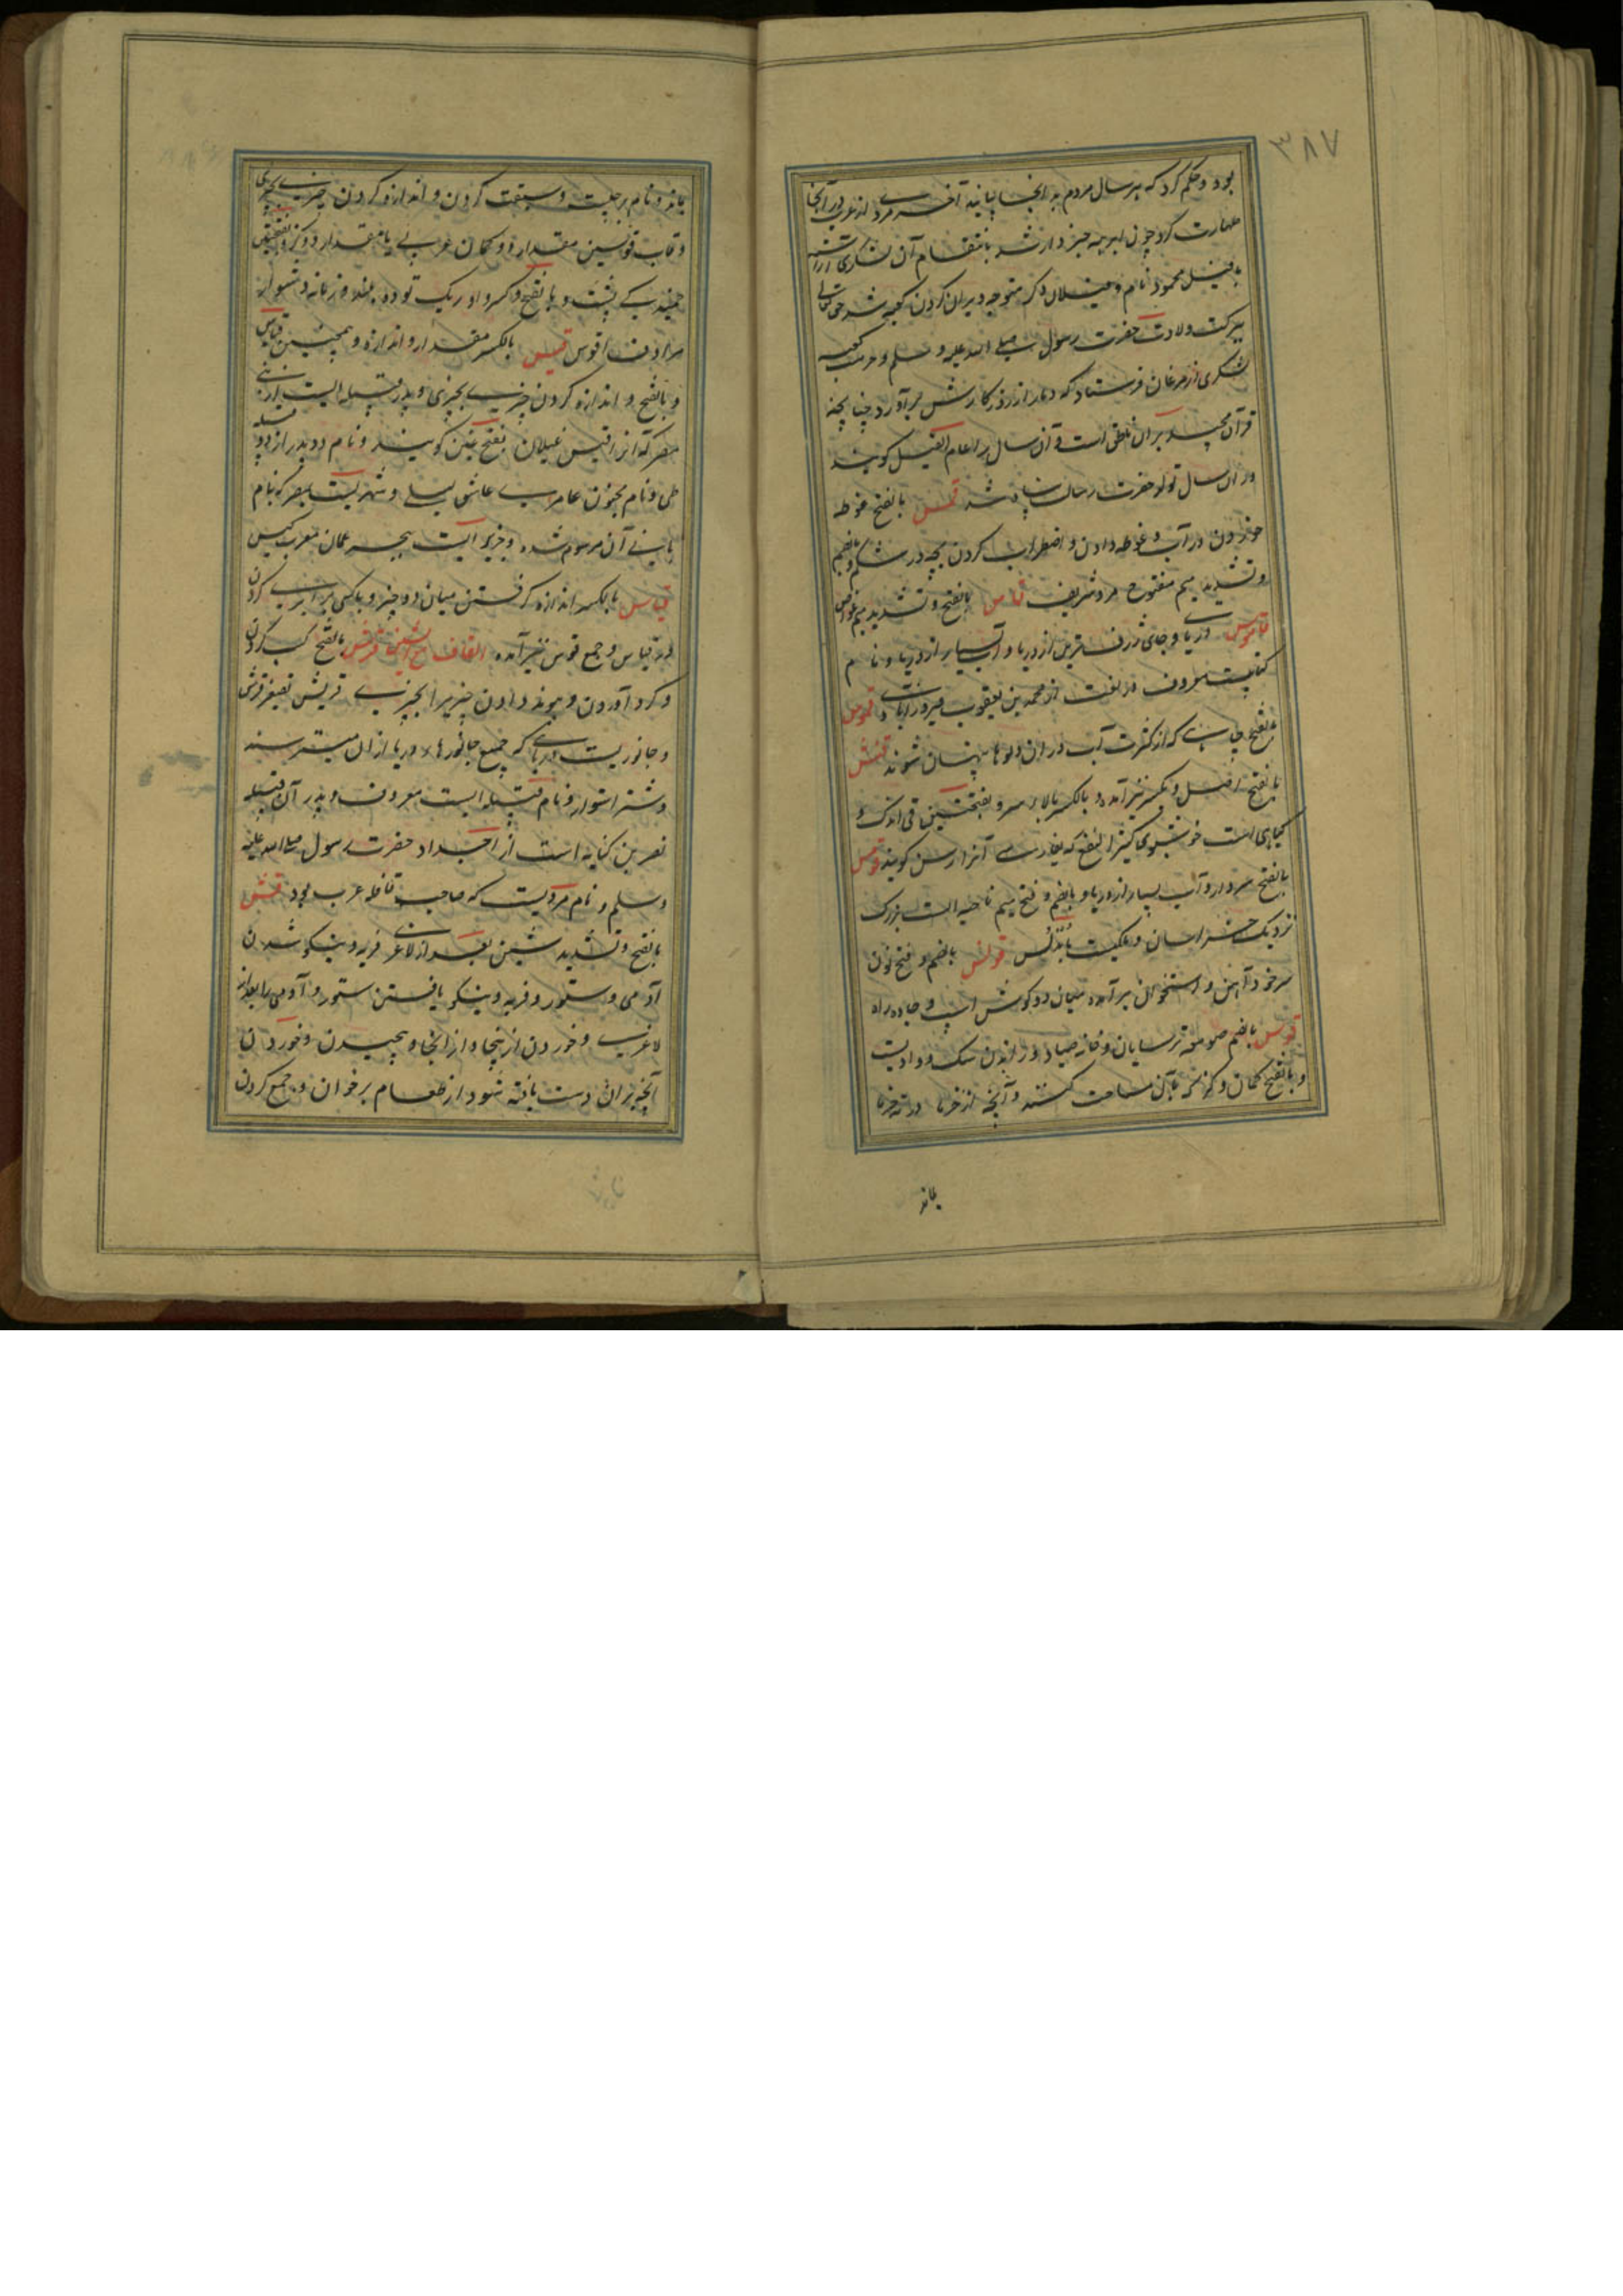 ۳۸۷
بود و حکم کرد که هر سال مردم به آنجا بیایند آخر مردی از عرب در آنجا
طهارت کرد چون ابرهه خبردار شد بانتقام آن لشکری آراسته
با فیل محمود نام و فیلان دیگر متوجه ویران کردن کعبه شد حق تعالی
ببرکت ولادت حضرت رسول صلی الله علیه و سلم و حرمت کعبه
لشکری از مرغان فرستاد که دمار از روزگارش برآورد چنانچه
قرآن مجید بر آن ناطق است و آن سال را عام الفیل گویند
و در آن سال تولد حضرت رسالت پناه شد قمس بالفتح غوطه
خوردن در آب و غوطه دادن و اضطراب کردن بچه در شکم و بالضم
و تشدید میم مفتوح مرد شریف قامس بالفتح و تشدید میم غواص
قاموس دریا و جای ژرف ترین از دریا و آب بسیار از دریا و نام
کتابیست معروف در لغت از محمد بن یعقوب فیروزآبادی و قموس
بالفتح چاهی که از کثرت آب در آن دلوها پنهان شوند قنس
بالفتح اصل و بکسر نیز آمده و بالکسر بالای سر و بفتحتین قی اندک و
گیاهی است خوشبوی کثیر النفع که بفارسی آنرا راسن گویند قومس
بالفتح سردار و آب بسیار از دریا و بالضم و فتح میم ناحیه ایست بزرگ
نزدیک خراسان و ملکیست باندلس قونس بالضم و فتح نون
سر خود آهن و استخوان برآمده میان دو گوش اسپ و جاده راه
قوس بالضم صومعه ترسایان و خانه صیاد و راندن سگ و وادیست
و بالفتح کمان و گز که بآن مساحت کنند و آنچه از خرما در ته خرما
ماند
ماند و نام برجیست و سبقت کردن و اندازه کردن چیزی بچیزی
و قاب قوسین مقدار دو کمان عربی یا مقدار دو گز و بفتحتین
خمیدگی پشت و بالفتح و کسر واو ریگ توده بلند و زمانه دشوار
مرادف اقوس قیس بالکسر مقدار و اندازه و همچنین قیاس
و بالفتح و اندازه کردن چیزی بچیزی و پدر قبیله ایست از بنی
مضر که آنرا قیس غیلان بفتح غین گویند و نام دو پدر از دو قبیله
طی و نام مجنون عامری عاشق لیلی و شهریست بمصر که بنام
بانی آن مرسوم شده و جزیره ایست ببحر عمان معرب کیس
قیاس بالکسر اندازه گرفتن میان دو چیز و با کسی برابری کردن
در قیاس و جمع قوس نیز آمده القاف مع الشین قرش بالفتح کسب کردن
و گرد آوردن و پیوند دادن چیزی را بچیزی قریش تصغیر قرش
و جانوریست دریائی که جمیع جانورهای دریا از آن میترسند
و شتر استوار و نام قبیله ایست معروف و پدر آن قبیله
نضر بن کنانه است از اجداد حضرت رسول صلی الله علیه
و سلم و نام مردیست که صاحب قافله عرب بود قش
بالفتح و تشدید شین بعد از لاغری فربه و نیکو شدن
آدمی و ستور و فربه و نیکو یافتن ستور و آدمی را بعد از
لاغری و خوردن از اینجا و از آنجا و پیچیدن و خوردن
آنچه بران دست یافته شود از طعام برخوان و جمع کردن